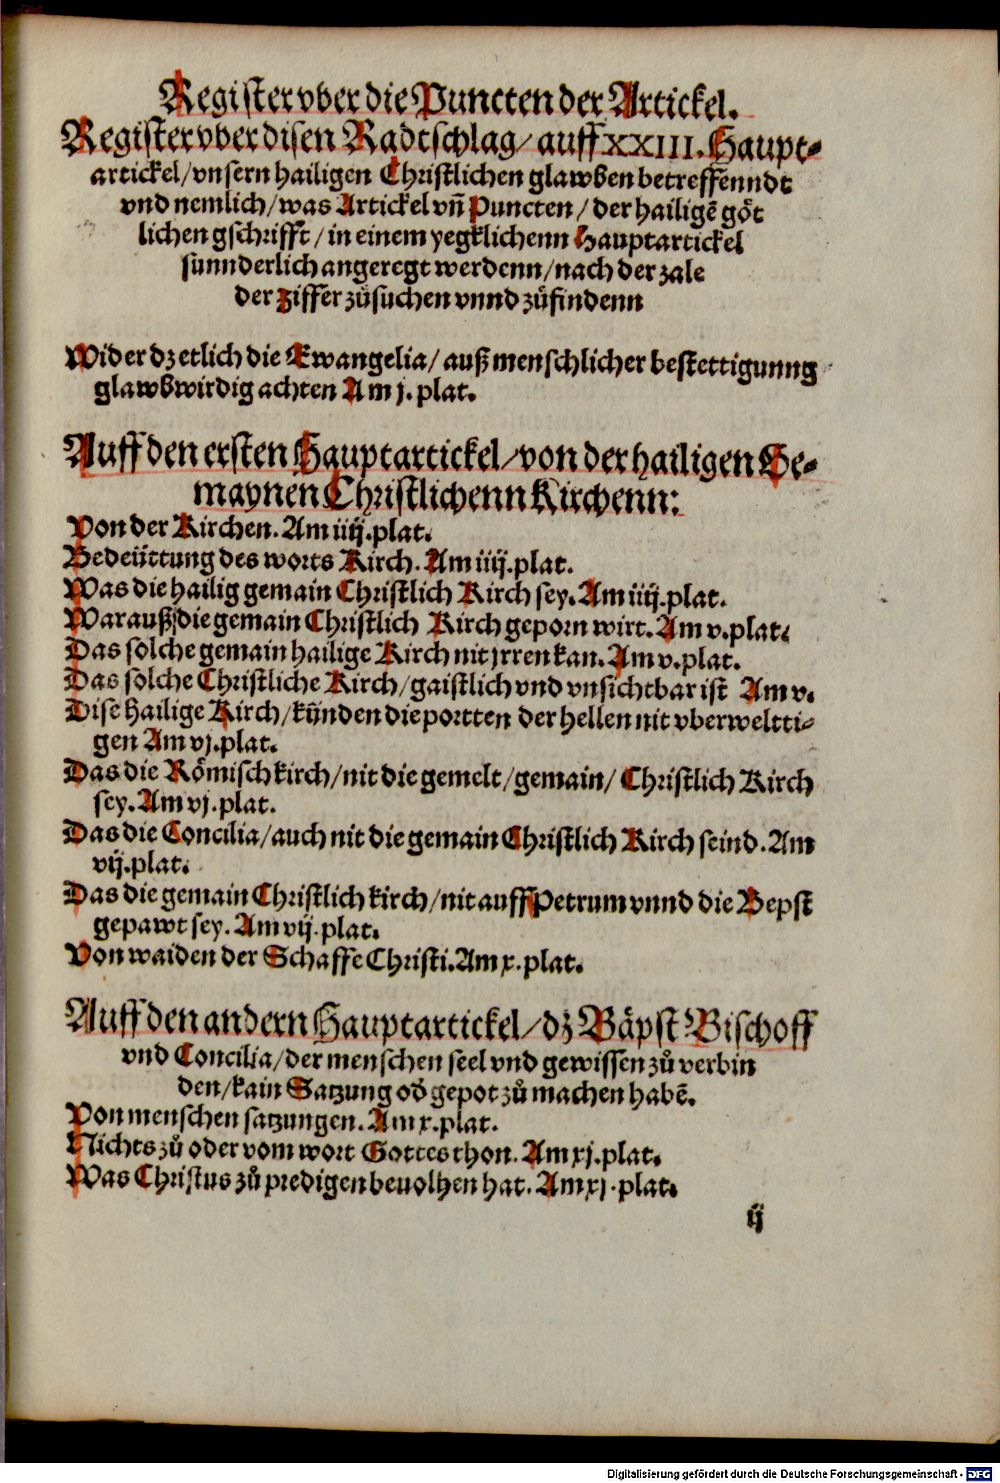 Register vber die Puncten der Artickel.
Register vber disen Radtschlag/ auff XXIII. Haupt-
artickel/ vnsern hailigen Christlichen glawben betreffenndt
vnd nemlich/ was Artickel vñ Puncten/ der hailigẽ göt
lichen gschrifft/ in einem yegklichenn Hauptartickel
sunnderlich angeregt werdenn/ nach der zale
der ziffer zůsuchen vnnd zůfindenn
Wider dz etlich die Ewangelia/ auß menschlicher bestettigunng
glawbwirdig achten Am j. plat.
Auff den ersten Hauptartickel/ von der hailigen Ge-
maynen Christlichenn Kirchenn:
Von der Kirchen. Am iiij. plat.
Bedeüttung des worts Kirch. Am iiij. plat.
Was die hailig gemain Christlich Kirch sey. Am iiij. plat.
Warauß die gemain Christlich Kirch geporn wirt. Am v. plat.
Das solche gemain hailige Kirch nit jrren kan. Am v. plat.
Das solche Christliche Kirch/ gaistlich vnd vnsichtbar ist Am v.
Dise hailige Kirch/ künden die portten der hellen nit vberweltti-
gen Am vj. plat.
Das die Römisch kirch/ nit die gemelt/ gemain/ Christlich Kirch
sey. Am vj. plat.
Das die Concilia/ auch nit die gemain Christlich Kirch seind. Am
vij. plat.
Das die gemain Christlich kirch/ nit auff Petrum vnnd die Bepst
gepawt sey. Am vij. plat.
Von waiden der Schaffe Christi. Am x. plat.
Auff den andern Hauptartickel/ dz Bäpst Bischoff
vnd Concilia/ der menschen seel vnd gewissen zů verbin
den/ kain Satzung oď gepot zů machen habẽ.
Von menschen satzungen. Am x. plat.
Nichts zů oder vom wort Gottes thon. Am xj. plat.
Was Christus zů predigen beuolhen hat. Am xj. plat.
ij
Digitalisierung gefördert durch die Deutsche Forschungsgemeinschaft - DFG